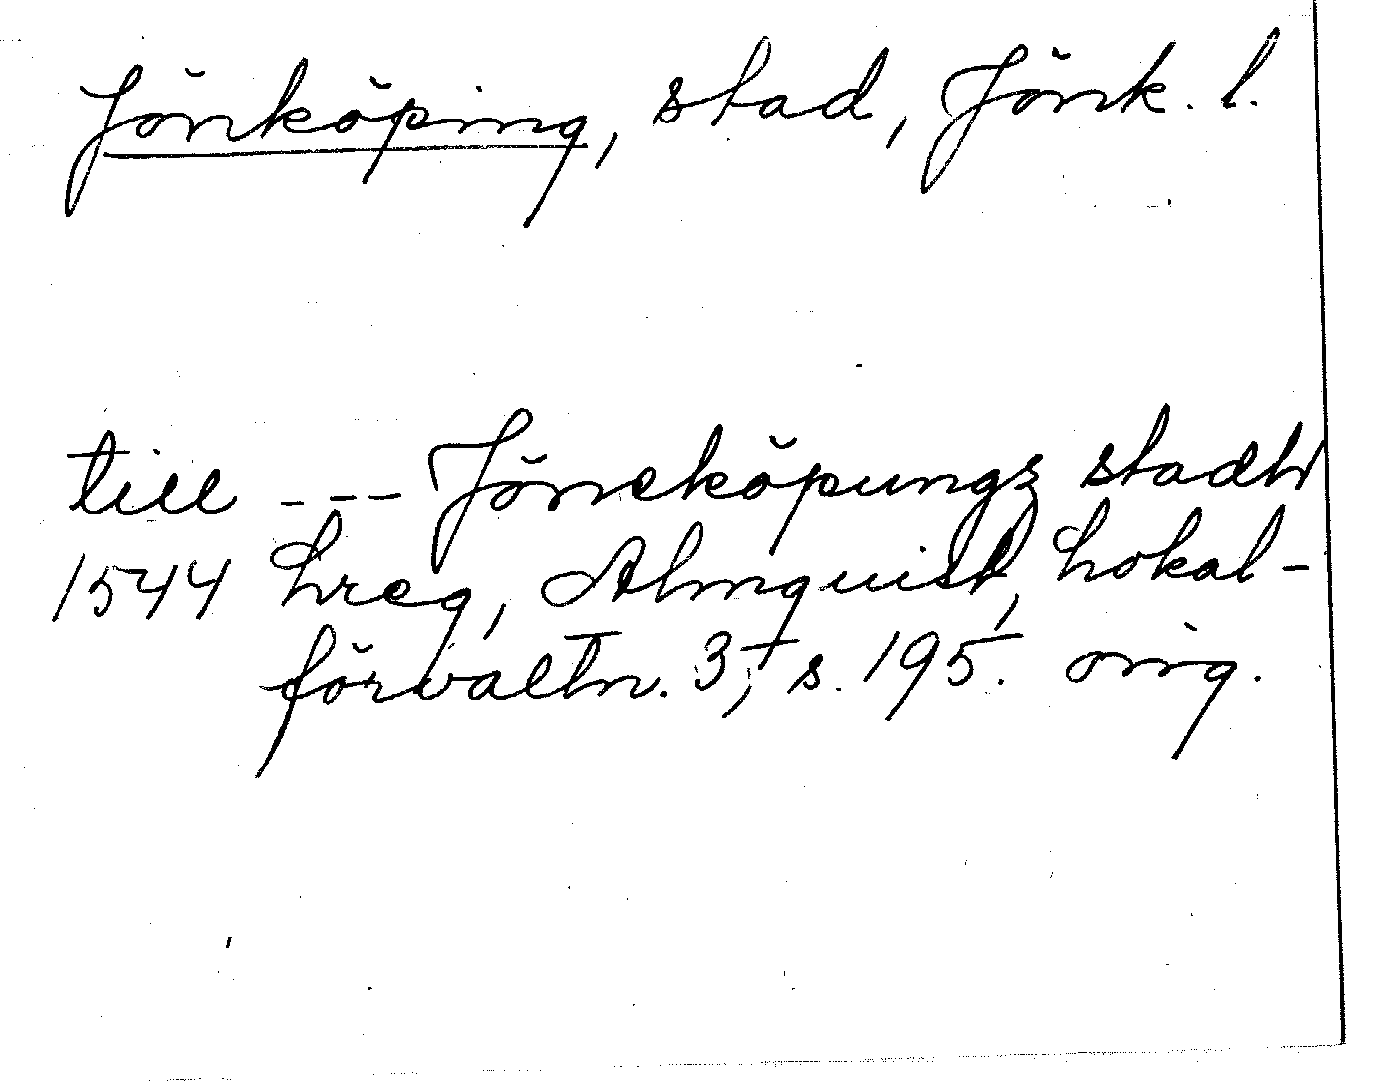 Jönköping, stad, Jönk. l.
till --- Jöneköpungz stadh
1544 Lreg, Almquist, Lokal-
förvaltn. 3, s. 195. orig.